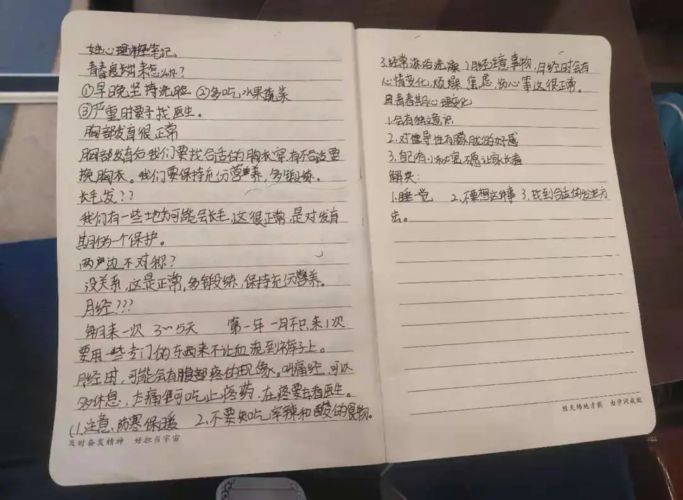 女生心理课笔记
青春痘出来怎么办?
①早晚坚持洗脸 ②多吃水果蔬菜
③严重时要去找医生。
胸部发育很正常
胸部发育后我们要找合适的胸衣穿,有不合适要
换胸衣。我们要保持充分营养,多锻练。
长毛发??
我们有一些地方可能会长毛,这很正常,是对发育
期的一个保护。
两边不对称?
没关系,这是正常,多锻练,保持充分营养。
月经???
每月来一次 3~5天 第一年一月不只来1次
要用一些专门的东西来不让血流到裤子上。
月经时,可能会有腹部疼的现象。叫痛经,可以
多休息,太痛便可吃止疼药,在疼要去看医生。
1.注意防寒保暖 2.不要吃辛辣和酸的食物。
及时奋发精神 好担当宇宙
3.经常淋浴洗澡 月经注意事物,月经时会有
心情变化,烦燥 焦虑 伤心等这很正常。
青春期心理变化
1.会有独立意识
2.对异性有朦胧的好感
3.自己有小秘密不愿让家长看
解决:
1.睡一觉 2.不要想这件事 3.找到合适的发泄方
法。
胜天师地方载 由学问成故